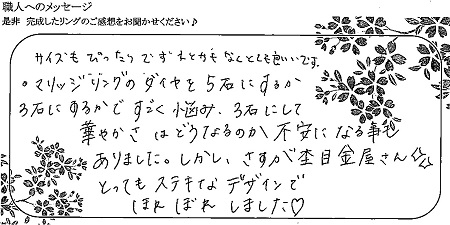 職人へのメッセージ
是非 完成したリングのご感想をお聞かせください♪
サイズも ぴったりで ずれとかもなく とても良いです。
。マリッジリングの ダイヤを 5石にするか
3石に するかで すごく悩み、3石にして
華やかさ はどうなるのか 不安に なる事も
ありました。しかし、さすが杢目金屋さん☆☆
とっても ステキな デザインで
ほれ ぼれ しました♡